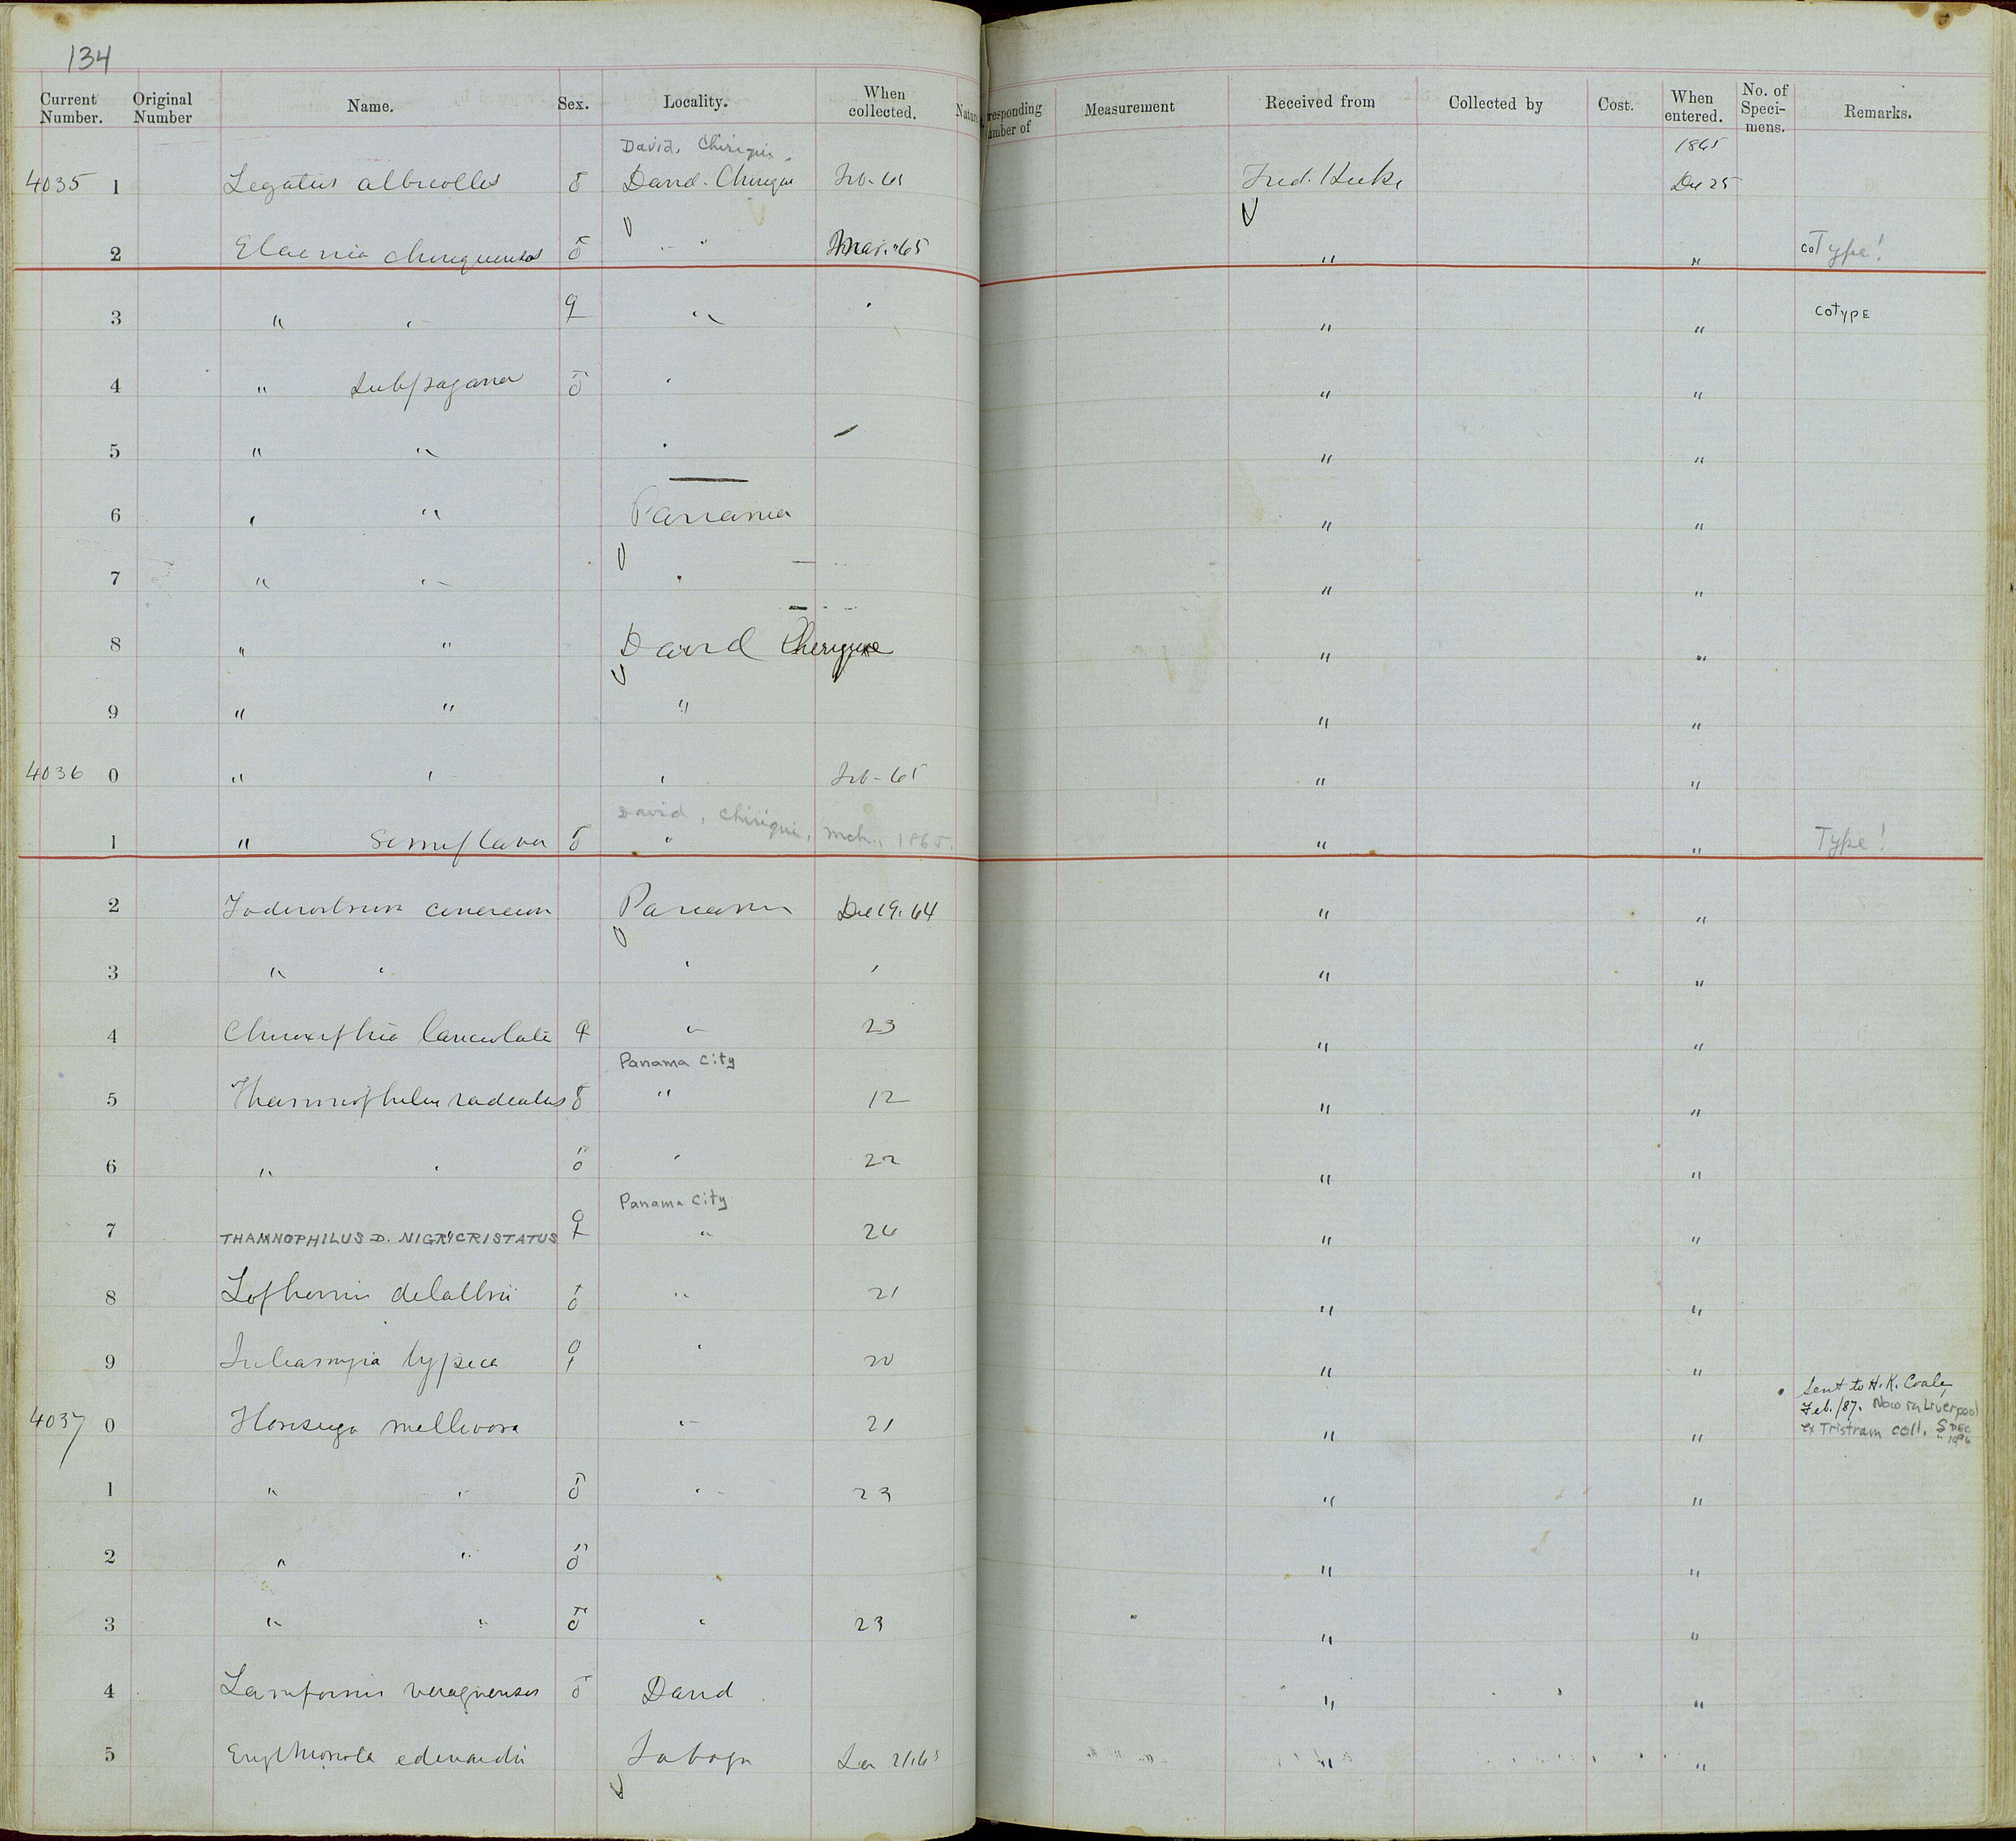 134
Current Number. Original Number Name. Sex. Locality. When collected. Natur responding mber of Measurement Received from Collected by Cost. When entered. No. of Speci-mens. Remarks.
David, Chiriqui. 1865
4035 1 Legatus albicollis ♂ David. Chiriqui Feb-65 Fred. Hicks Dec 25
2 Elaenia chiriquensis ♂ " " Mar. 65 " " coType!
3 " " ♀ " " " " coType
4 " subpagana ♂ " " "
5 " " " " "
6 " " Panama " "
7 " " " " "
8 " " David Chiriqui " "
9 " " " " "
4036 0 " " " Feb-65 " "
David, Chiriqui, Mch., 1865.
1 " semiflava ♂ " " " Type!
2 Todirostrum cinereum Panama Dec 19. 64 " "
3 " " " " " "
4 Chiroxiphia lanceolata ♀ " 23 " "
Panama City
5 Thamnophilus radiatus ♂ " 12 " "
6 " " ♂ " 22 " "
Panama City
7 THAMNOPHILUS D. NIGRICRISTATUS ♀ " 26 " "
8 Lophornis delattrii ♂ " 21 " "
9 Juliamyia typica ♀ " 20 " "
Sent to H. K. Coale,
Feb./87. Now in Liverpool
4037 0 Florisuga mellivora " 21 " " ex Tristram coll. 5 DEC 1896
1 " " ♂ " 23 " "
2 " " ♂ " "
3 " " ♂ " 23 " "
4 Lampornis veraguensis ♂ David " "
5 Erythronota edwardii Taboga Jan 21.65 " "